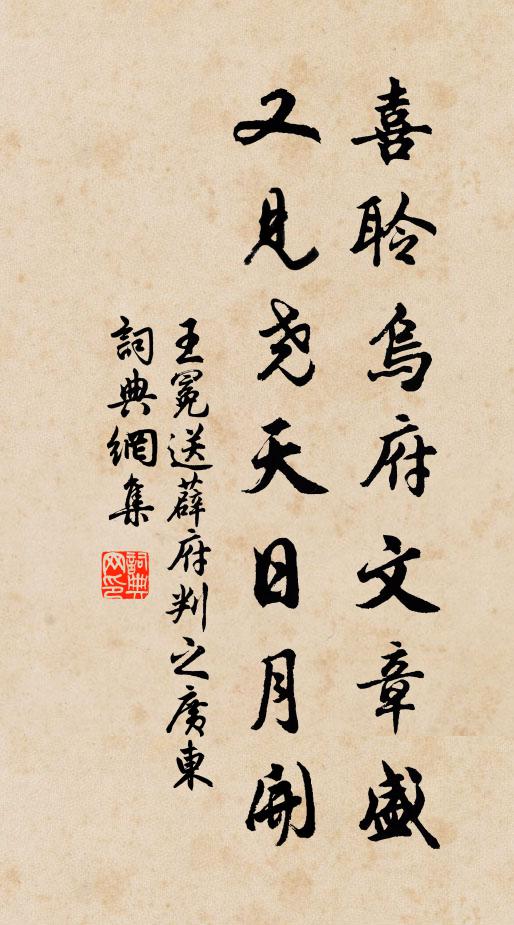 喜聆烏府文章盛
又見尧天日月開
王冕送薜府判之廣東
詞典網集
詞典
网印